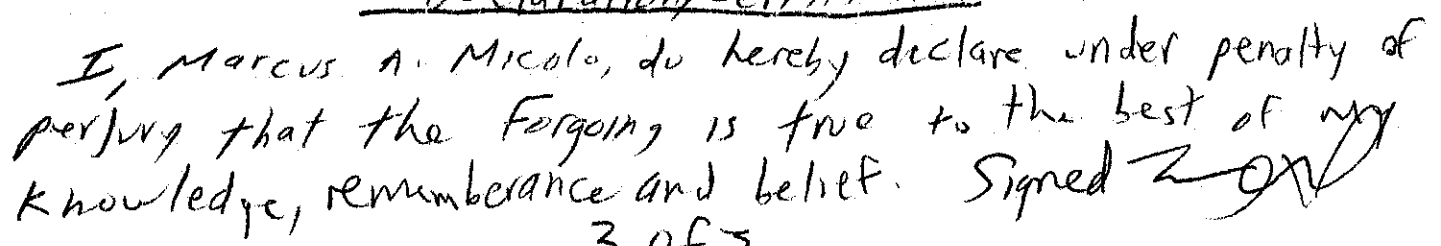 I, Marcus A. Micolo, do hereby declare under penalty of
perjury that the Forgoing is true to the best of my
knowledge, rememberance and belief. Signed
3 of 5